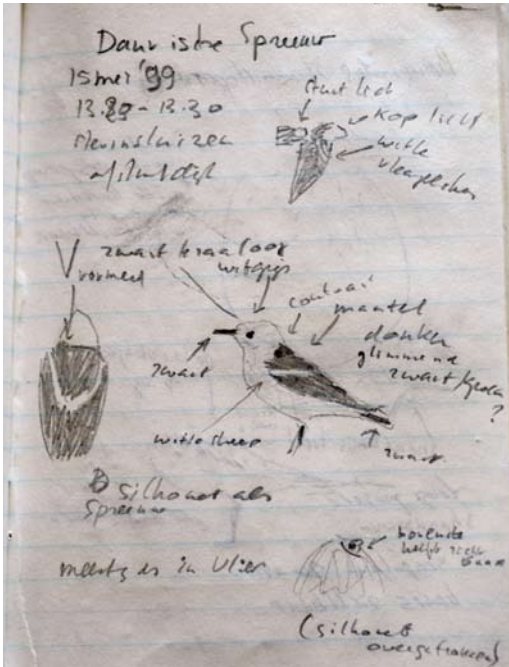 Daurische Spreeuw
15 mei '99
13.20 - 13.30
Stevinsluizen
afsluitdijk
stuit licht
kop licht
witte
vleugelstrepen
V
vormend
zwart kraaloog
witgrijs
contrast
mantel
donker
glimmend
zwart/groen
?
zwart
witte streep
zwart
silhouet als
Spreeuw
meestal in Vlier
bovenste
helft
(silhouet
overgetrokken)